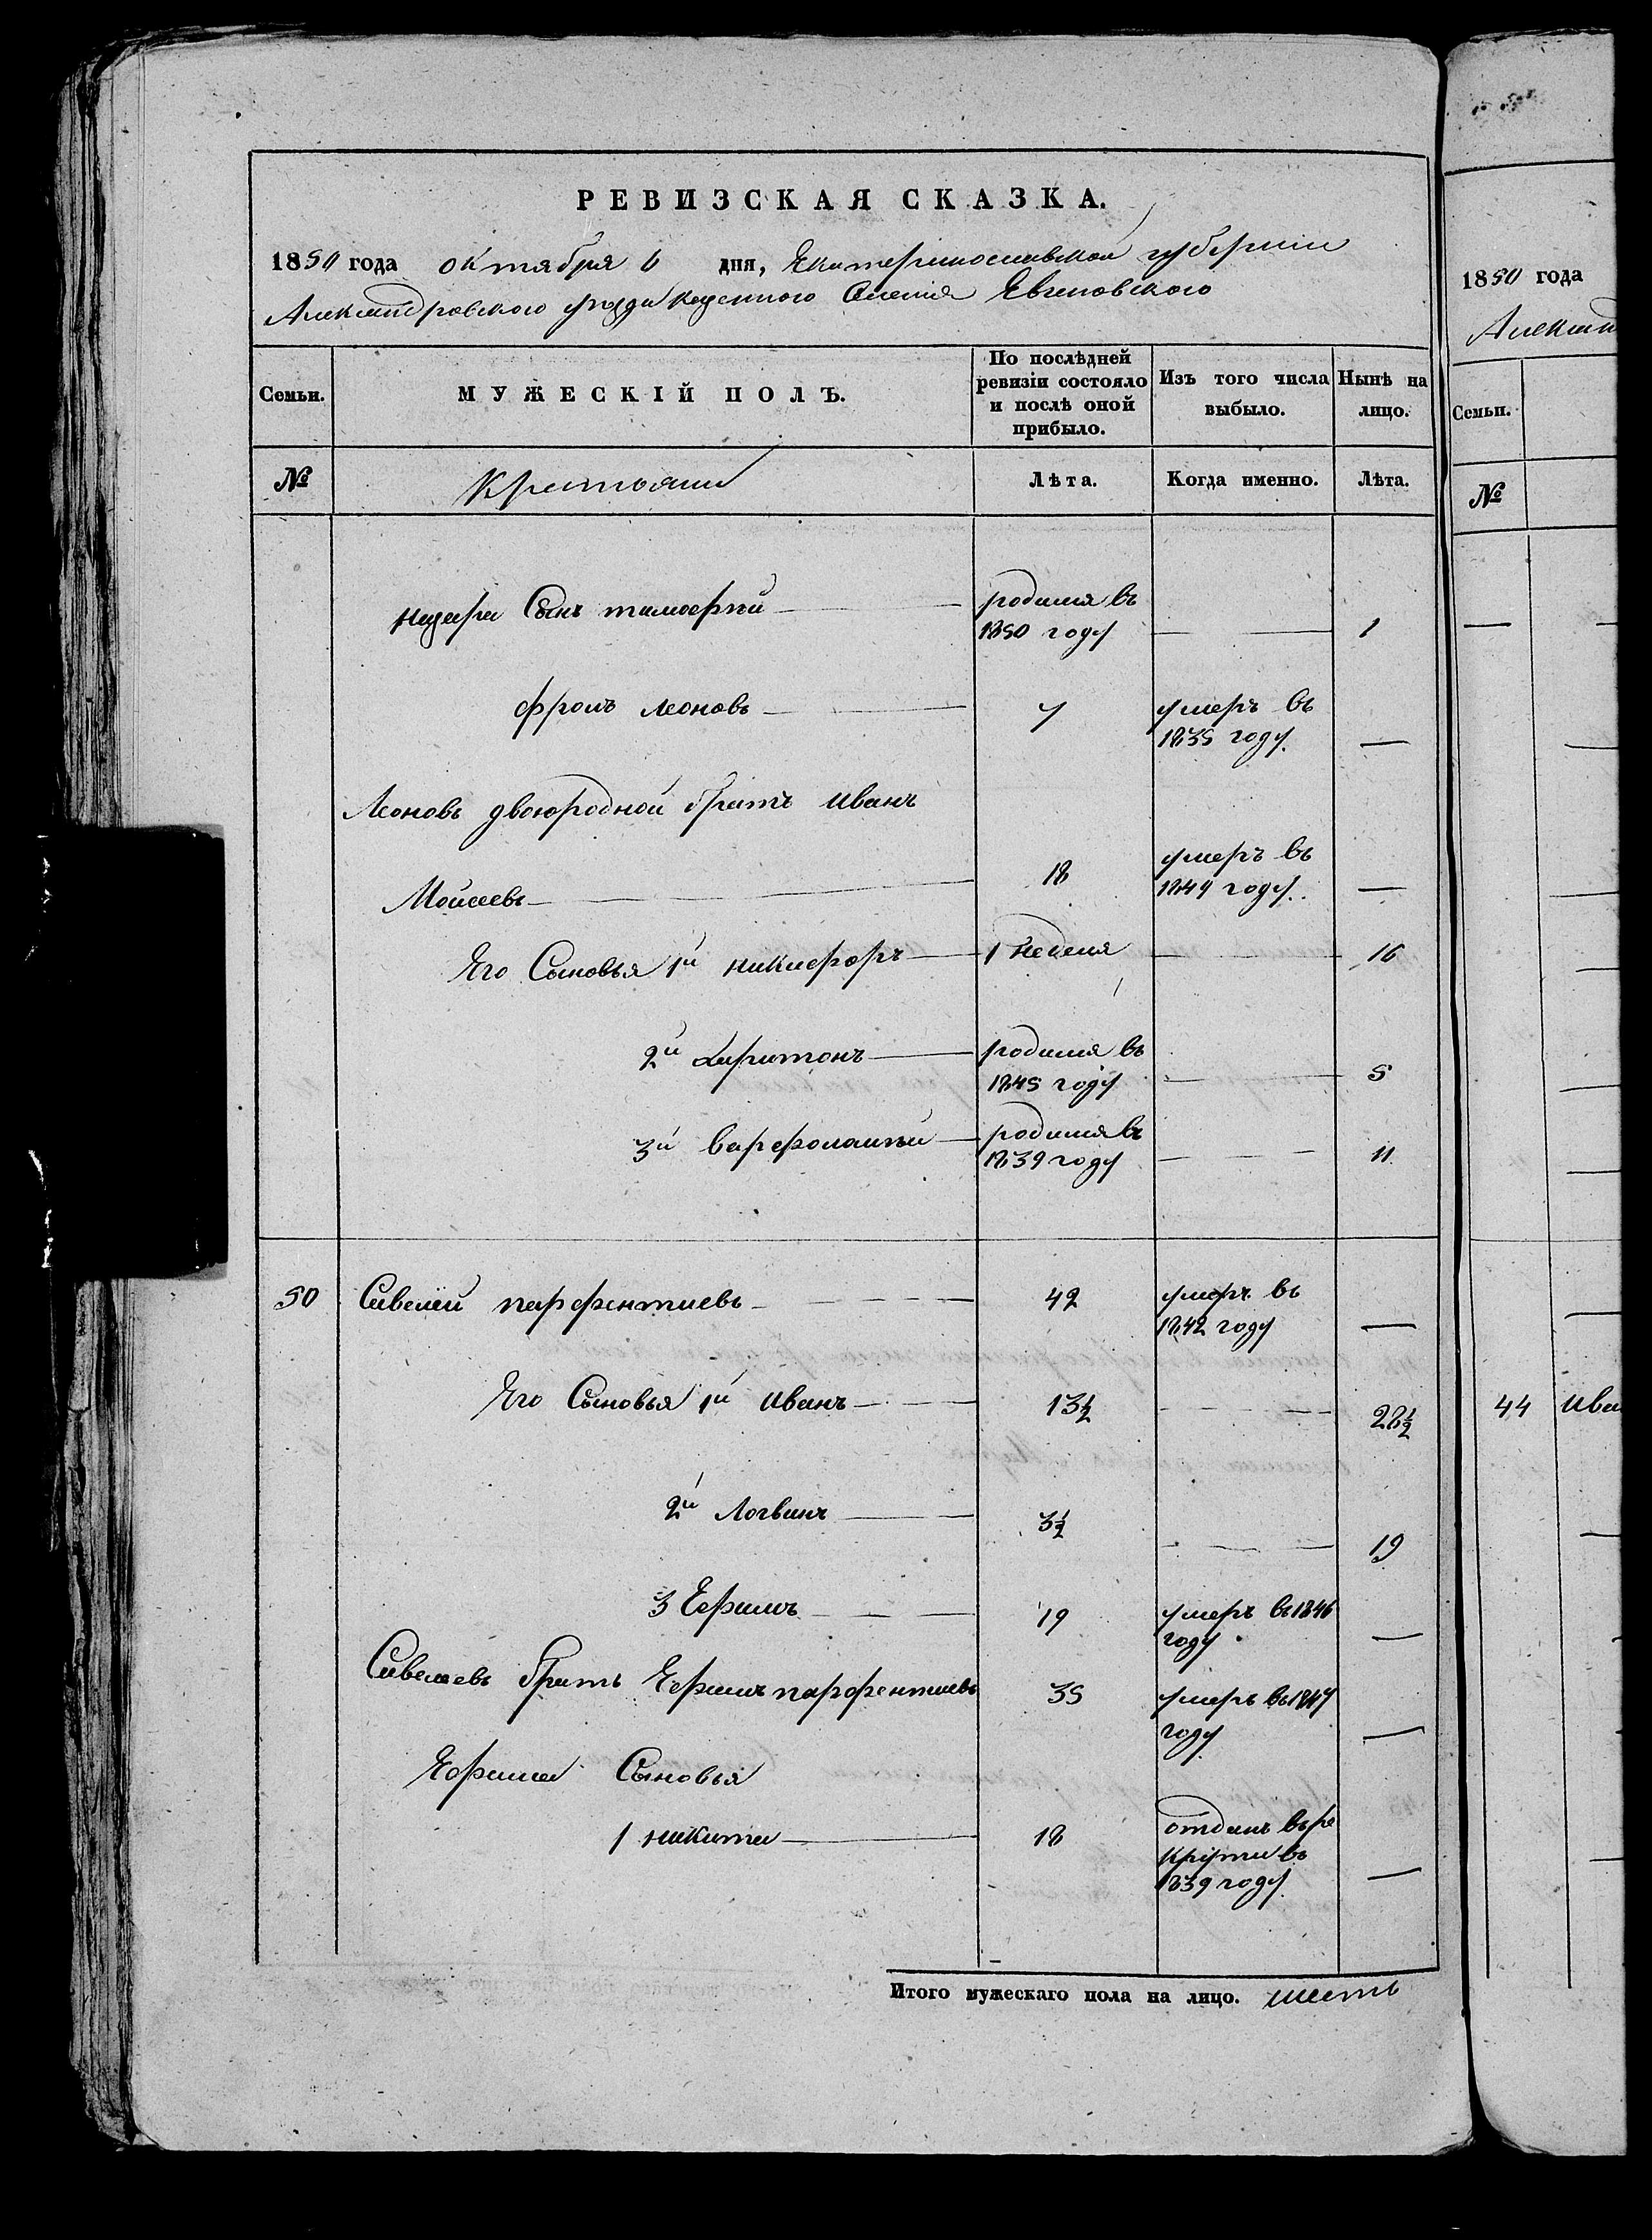 РЕВИЗСКАЯ СКАЗКА.
1850 года октября 6 дня, Екатеринославской губернии
Александровского уезда казенного Селения Евгеновского
Семьи.
МУЖЕСКІЙ ПОЛЪ.
По послѣдней ревизіи состояло и послѣ оной прибыло.
Изъ того числа выбыло.
Нынѣ на лицо.
№
Крестьяни
Лѣта.
Когда именно.
Лѣта.
назара Сынъ тимофѣй — родился въ
1850 году — 1
фролъ леоновъ — 7 умеръ въ
1835 году. —
Леоновъ двоюродной братъ иванъ
Моисеевъ — 18 умеръ въ
1849 году. —
Его Сыновья 1й никифоръ — 1 неделя — 16
2й Харитонъ — родился въ
1845 году — 5
3й варфоламѣй — родился въ
1839 году — 11
50 Савелей парфентиевъ — 42 умеръ въ
1842 году —
Его Сыновья 1й иванъ — 13½ — 28½
2й Логвинъ — 3½ — 19
3 Ефимъ — 19 умеръ въ 1846
году —
Савелаевъ братъ Ефимъ парфентиевъ 35 умеръ въ 1847
году —
Ефима Сыновья
1 никита — 18 отданъ въ ре
круты въ
1839 году —
Итого мужескаго пола на лицо. шесть
1850 года
Александ
Семьи.
№
44 ива